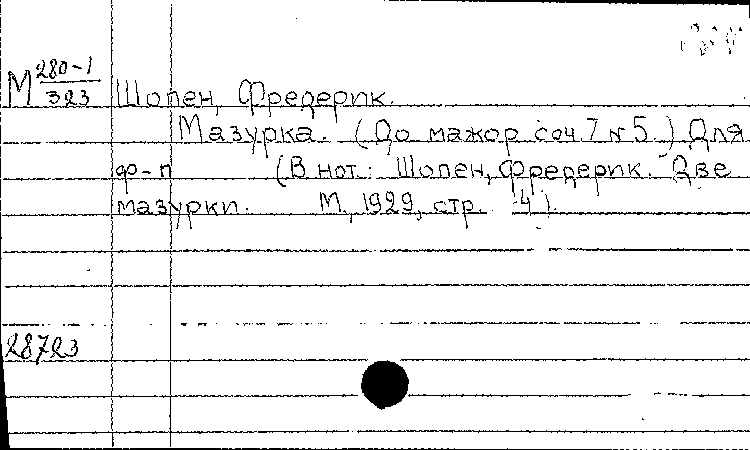 М 280-1/323 Шопен, Фредерик.
Мазурка. (До мажор соч. 7 № 5.) Для
ф-п (В нот.: Шопен, Фредерик. Две
мазурки. М., 1929, стр. 4).
28723